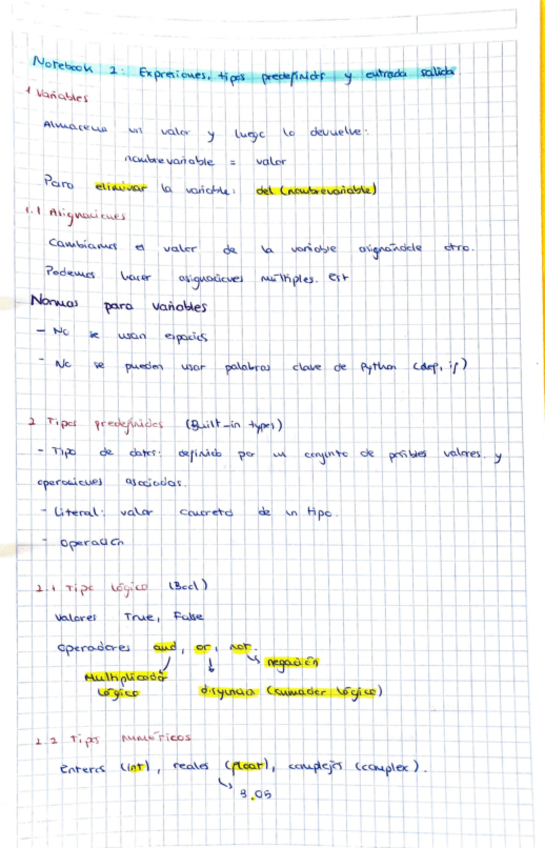 Notebook 2: Expresiones, tipos predefinidos y entrada salida
1 Variables
Almacena un valor y luego lo devuelve:
nombrevariable = valor
Para eliminar la variable: del (nombrevariable)
1.1 Asignaciones
Cambiamos el valor de la variable asignándole otro.
Podemos hacer asignaciones múltiples.
Normas para variables
- No se usan espacios
- No se pueden usar palabras clave de Python (def, if)
2 Tipos predefinidos (Built-in types)
- Tipo de datos: definido por un conjunto de posibles valores y
operaciones asociadas.
- Literal: valor concreto de un tipo.
- Operación
2.1 Tipo lógico (Bool)
Valores True, False
Operadores and, or, not.
negación
Multiplicador
lógico
disyunción (sumador lógico)
2.2 Tipos numéricos
Enteros (int), reales (float), complejos (complex).
3.05